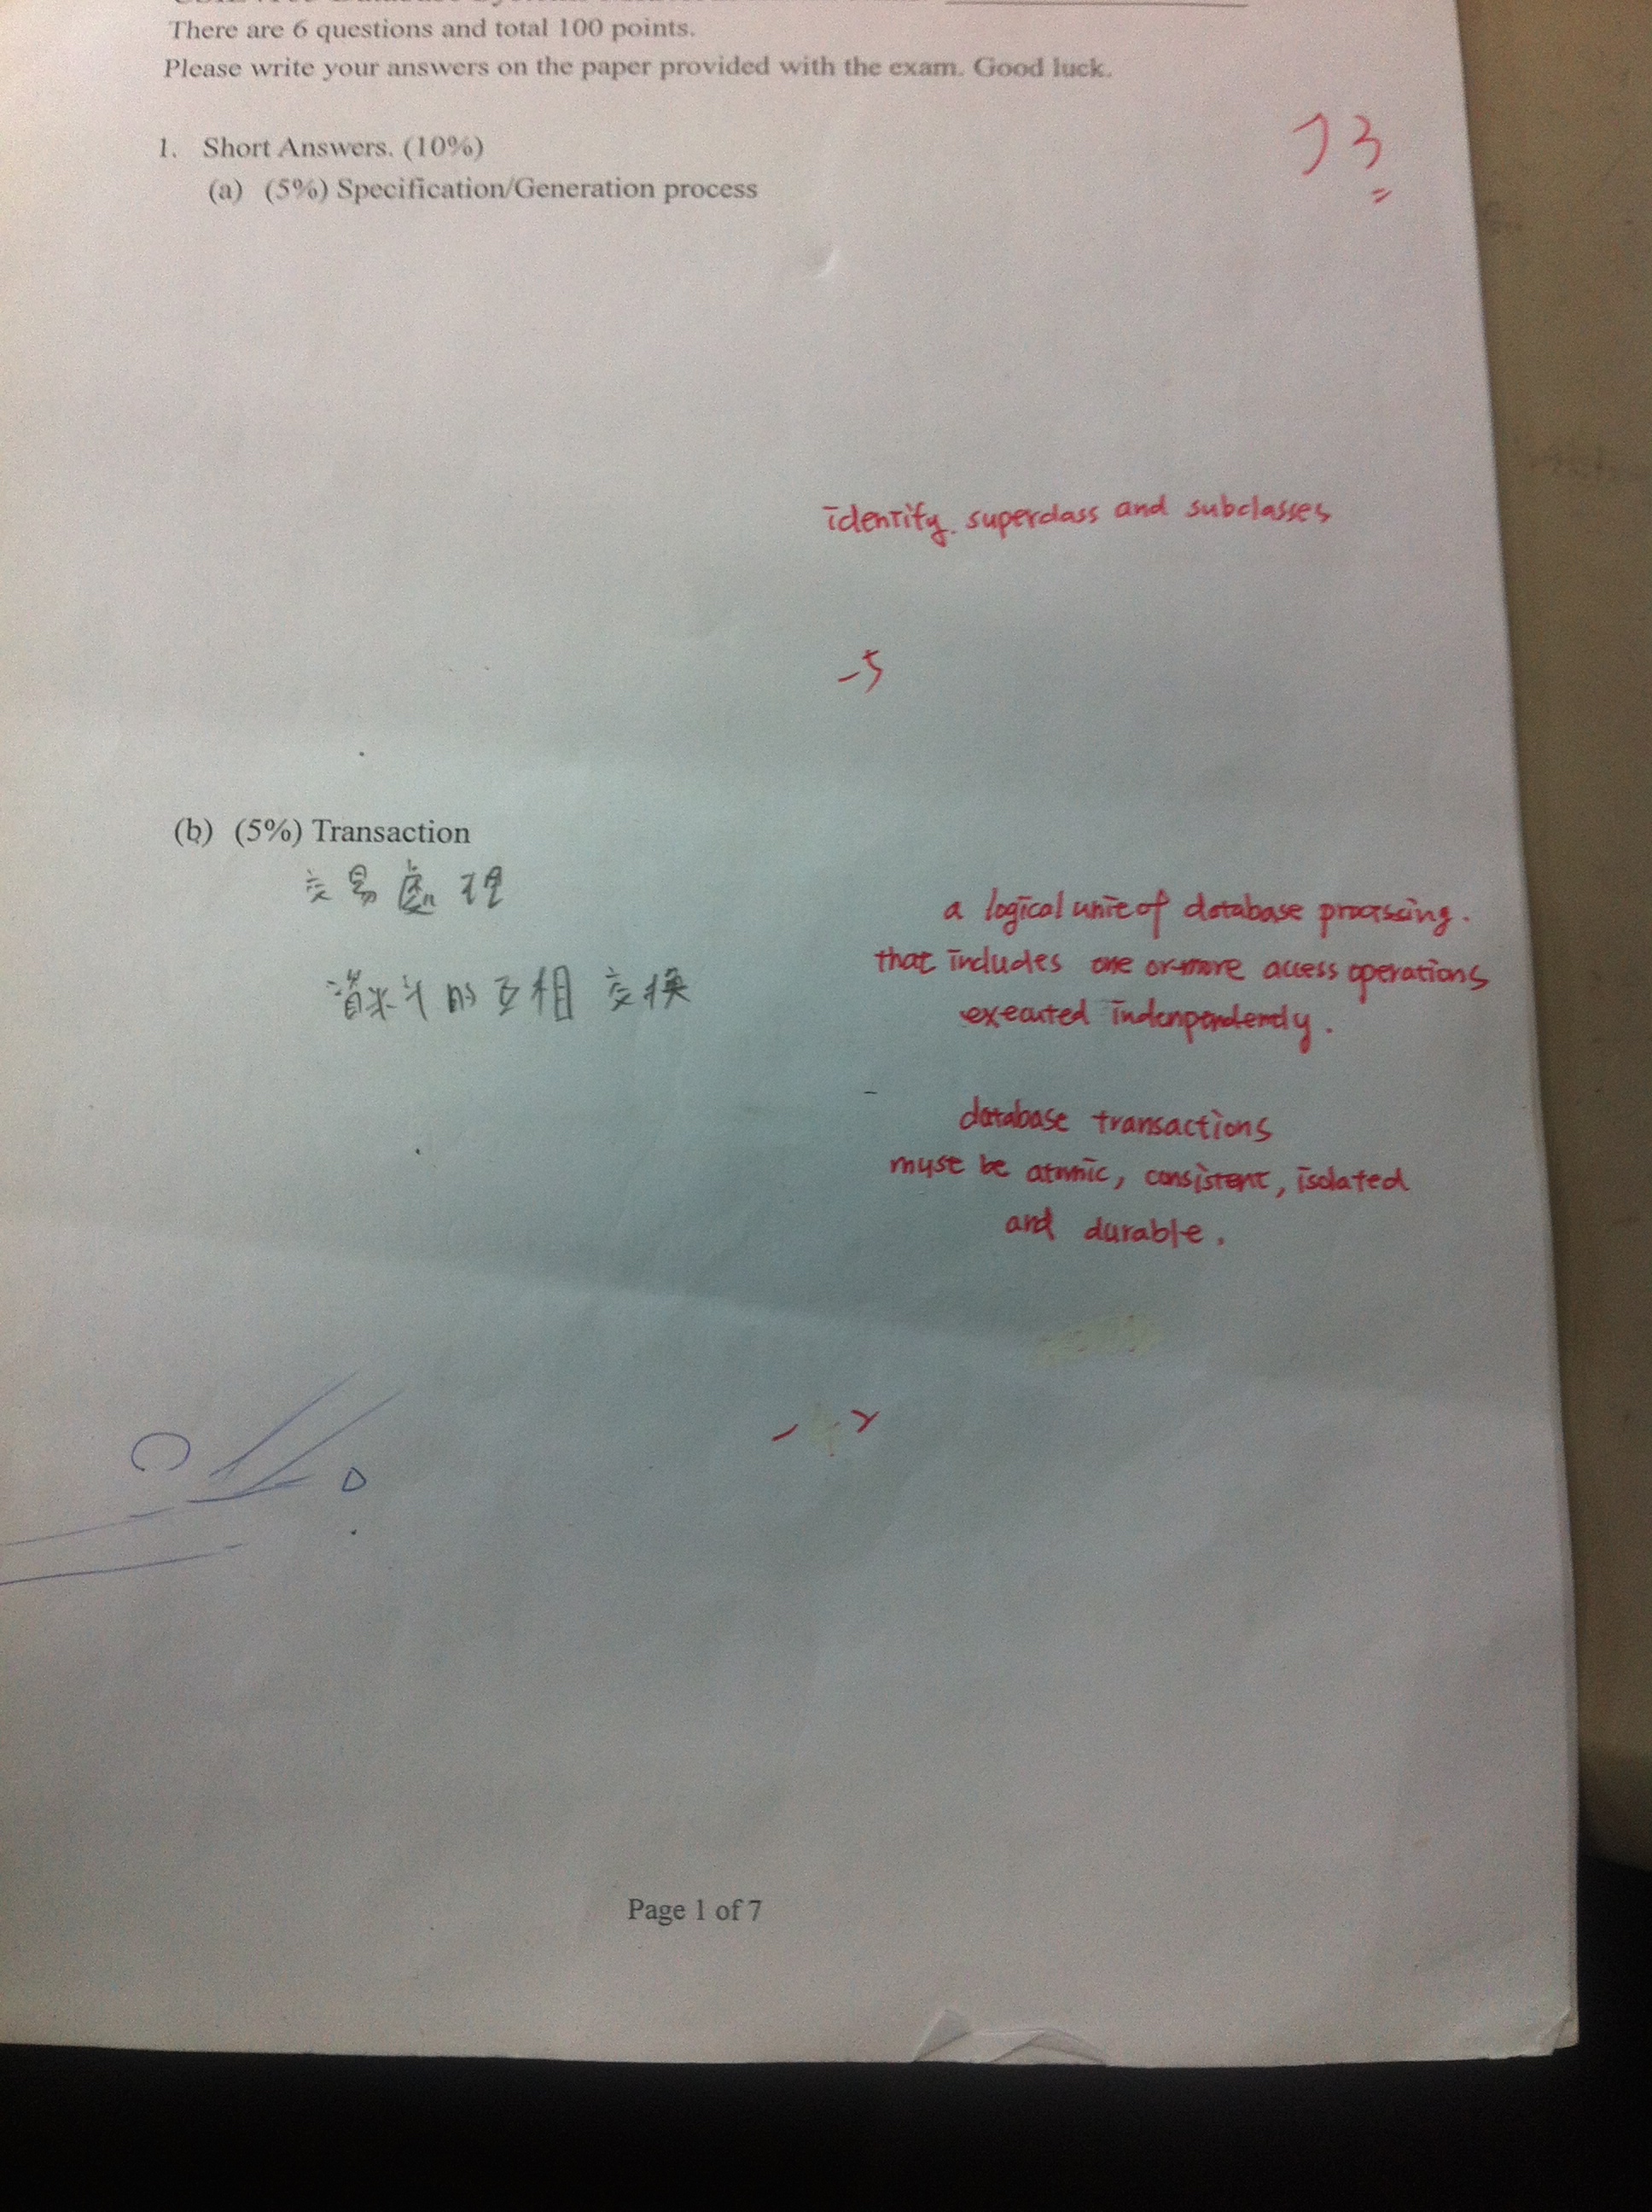 There are 6 questions and total 100 points.
Please write your answers on the paper provided with the exam. Good luck.
73
1. Short Answers. (10%)
(a) (5%) Specification/Generation process
identify superclass and subclasses
-5
(b) (5%) Transaction
交易處理
a logical unit of database processing.
that includes one or more access operations
的互相交換
executed indenpendently.
database transactions
must be atomic, consistent, isolated
and durable.
Page 1 of 7